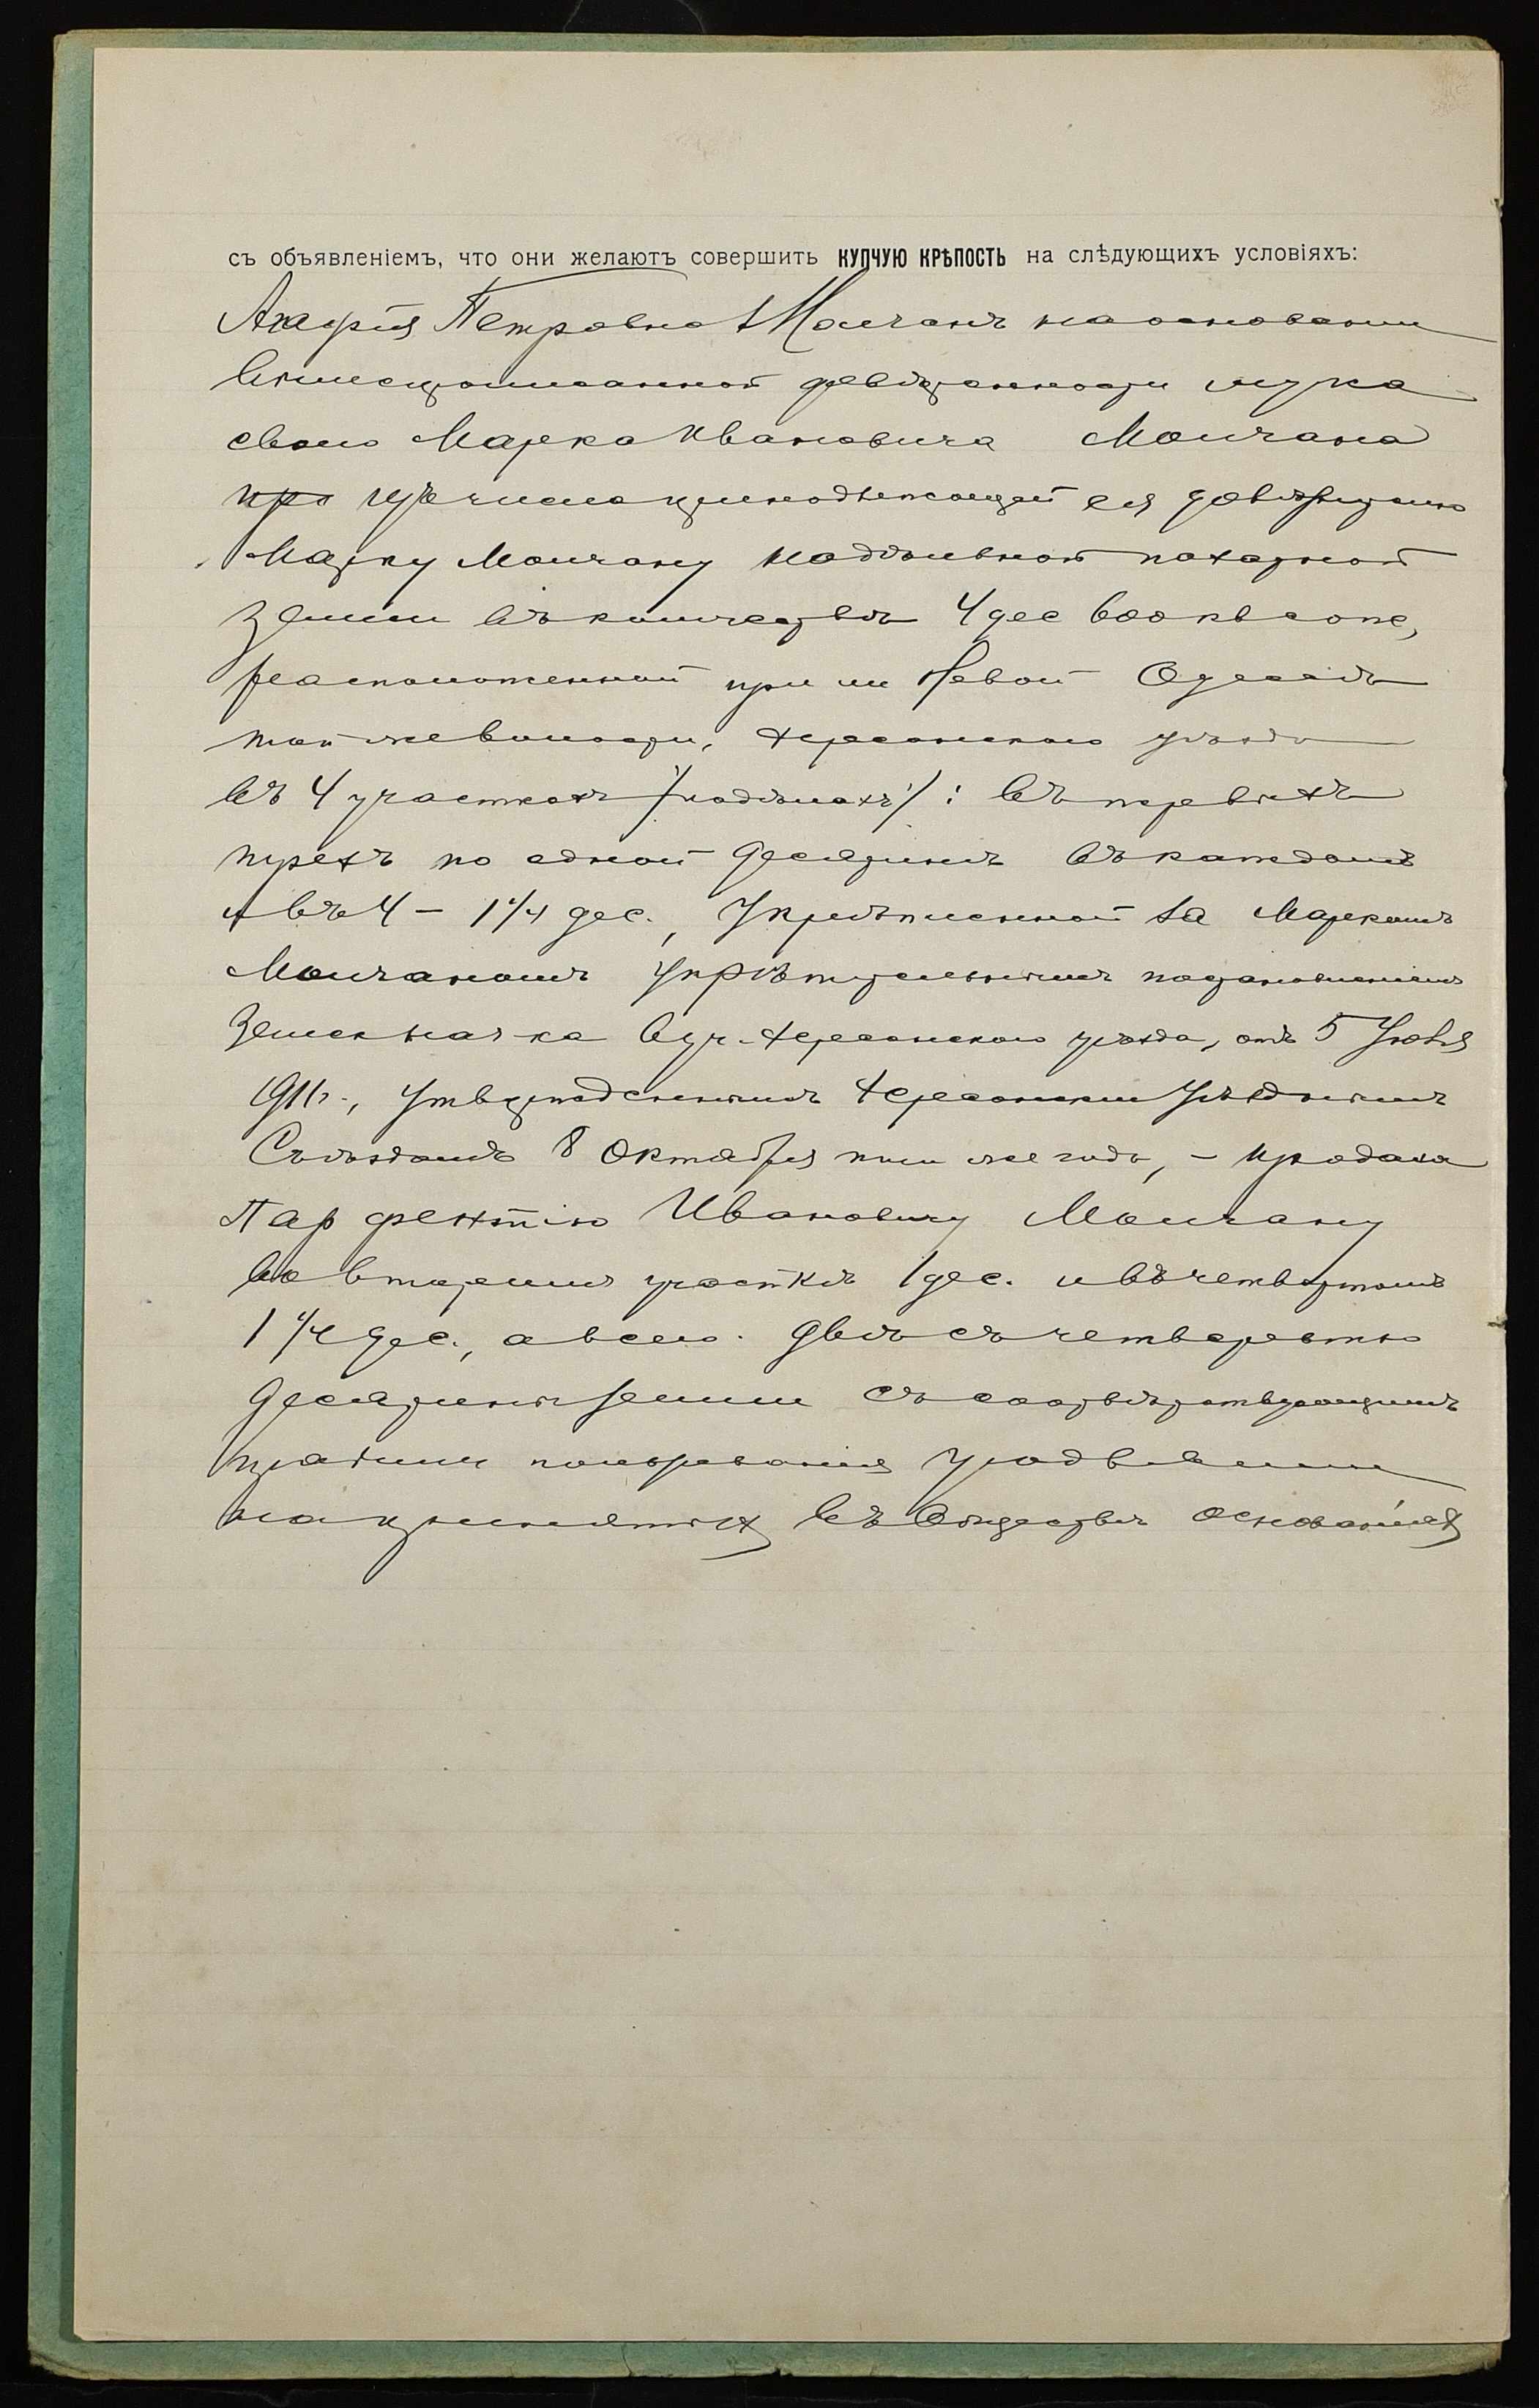 съ объявленіемъ, что они желаютъ совершить КУПЧУЮ КРѢПОСТЬ на слѣдующихъ условіяхъ:
Агафія Петровна Молчанъ на основаніи
вышепрописанной довѣренности мужа
своего Марка Ивановича Молчана
про изъ числа принадлежащей ея довѣрителю
Марку Молчану надѣльной пахатной
земли въ количествѣ 4 дес
расположенной при м Новой Одессѣ
той же волости, Херсонскаго уѣзда
въ 4 участкахъ /надѣлахъ/: въ первыхъ
трехъ по одной десятинѣ въ каждомъ
и въ 4 – 1 1/4 дес., укрѣпленной за Маркомъ
Молчаномъ укрѣпительнымъ постановленіемъ
Земск нач-ка 6 уч. Херсонскаго уѣзда, отъ 5 Іюля
1911 г., утвержденнымъ Херсонскимъ Уѣзднымъ
Съѣздомъ 8 Октября того же года, – продала
Парфентію Ивановичу Молчану
во второмъ участкѣ 1 дес. и въ четвертомъ
1 1/4 дес., а всего двѣ съ четвертью
десятины земли съ соотвѣтствующимъ
правомъ пользованія
на принятыхъ въ Обществѣ основаніяхъ